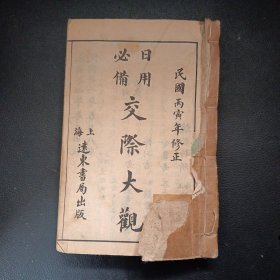 民國丙寅年修正
日用
必備
交際大觀
上海遠東書局出版